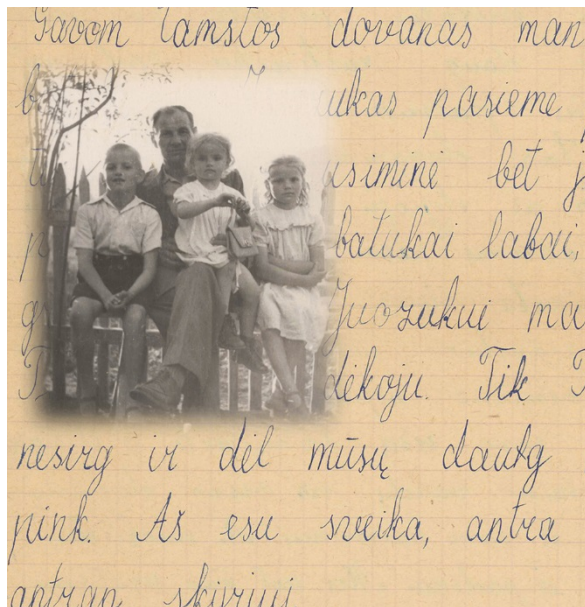 Gavom Tamstos dovanas man
ukas pasieme
usiminė bet j
batukai labai,
Juozukui ma
dėkoju. Tik T
nesirg ir dėl mūsų daug
pink. Aš esu sveika, antra
antran skiriuj